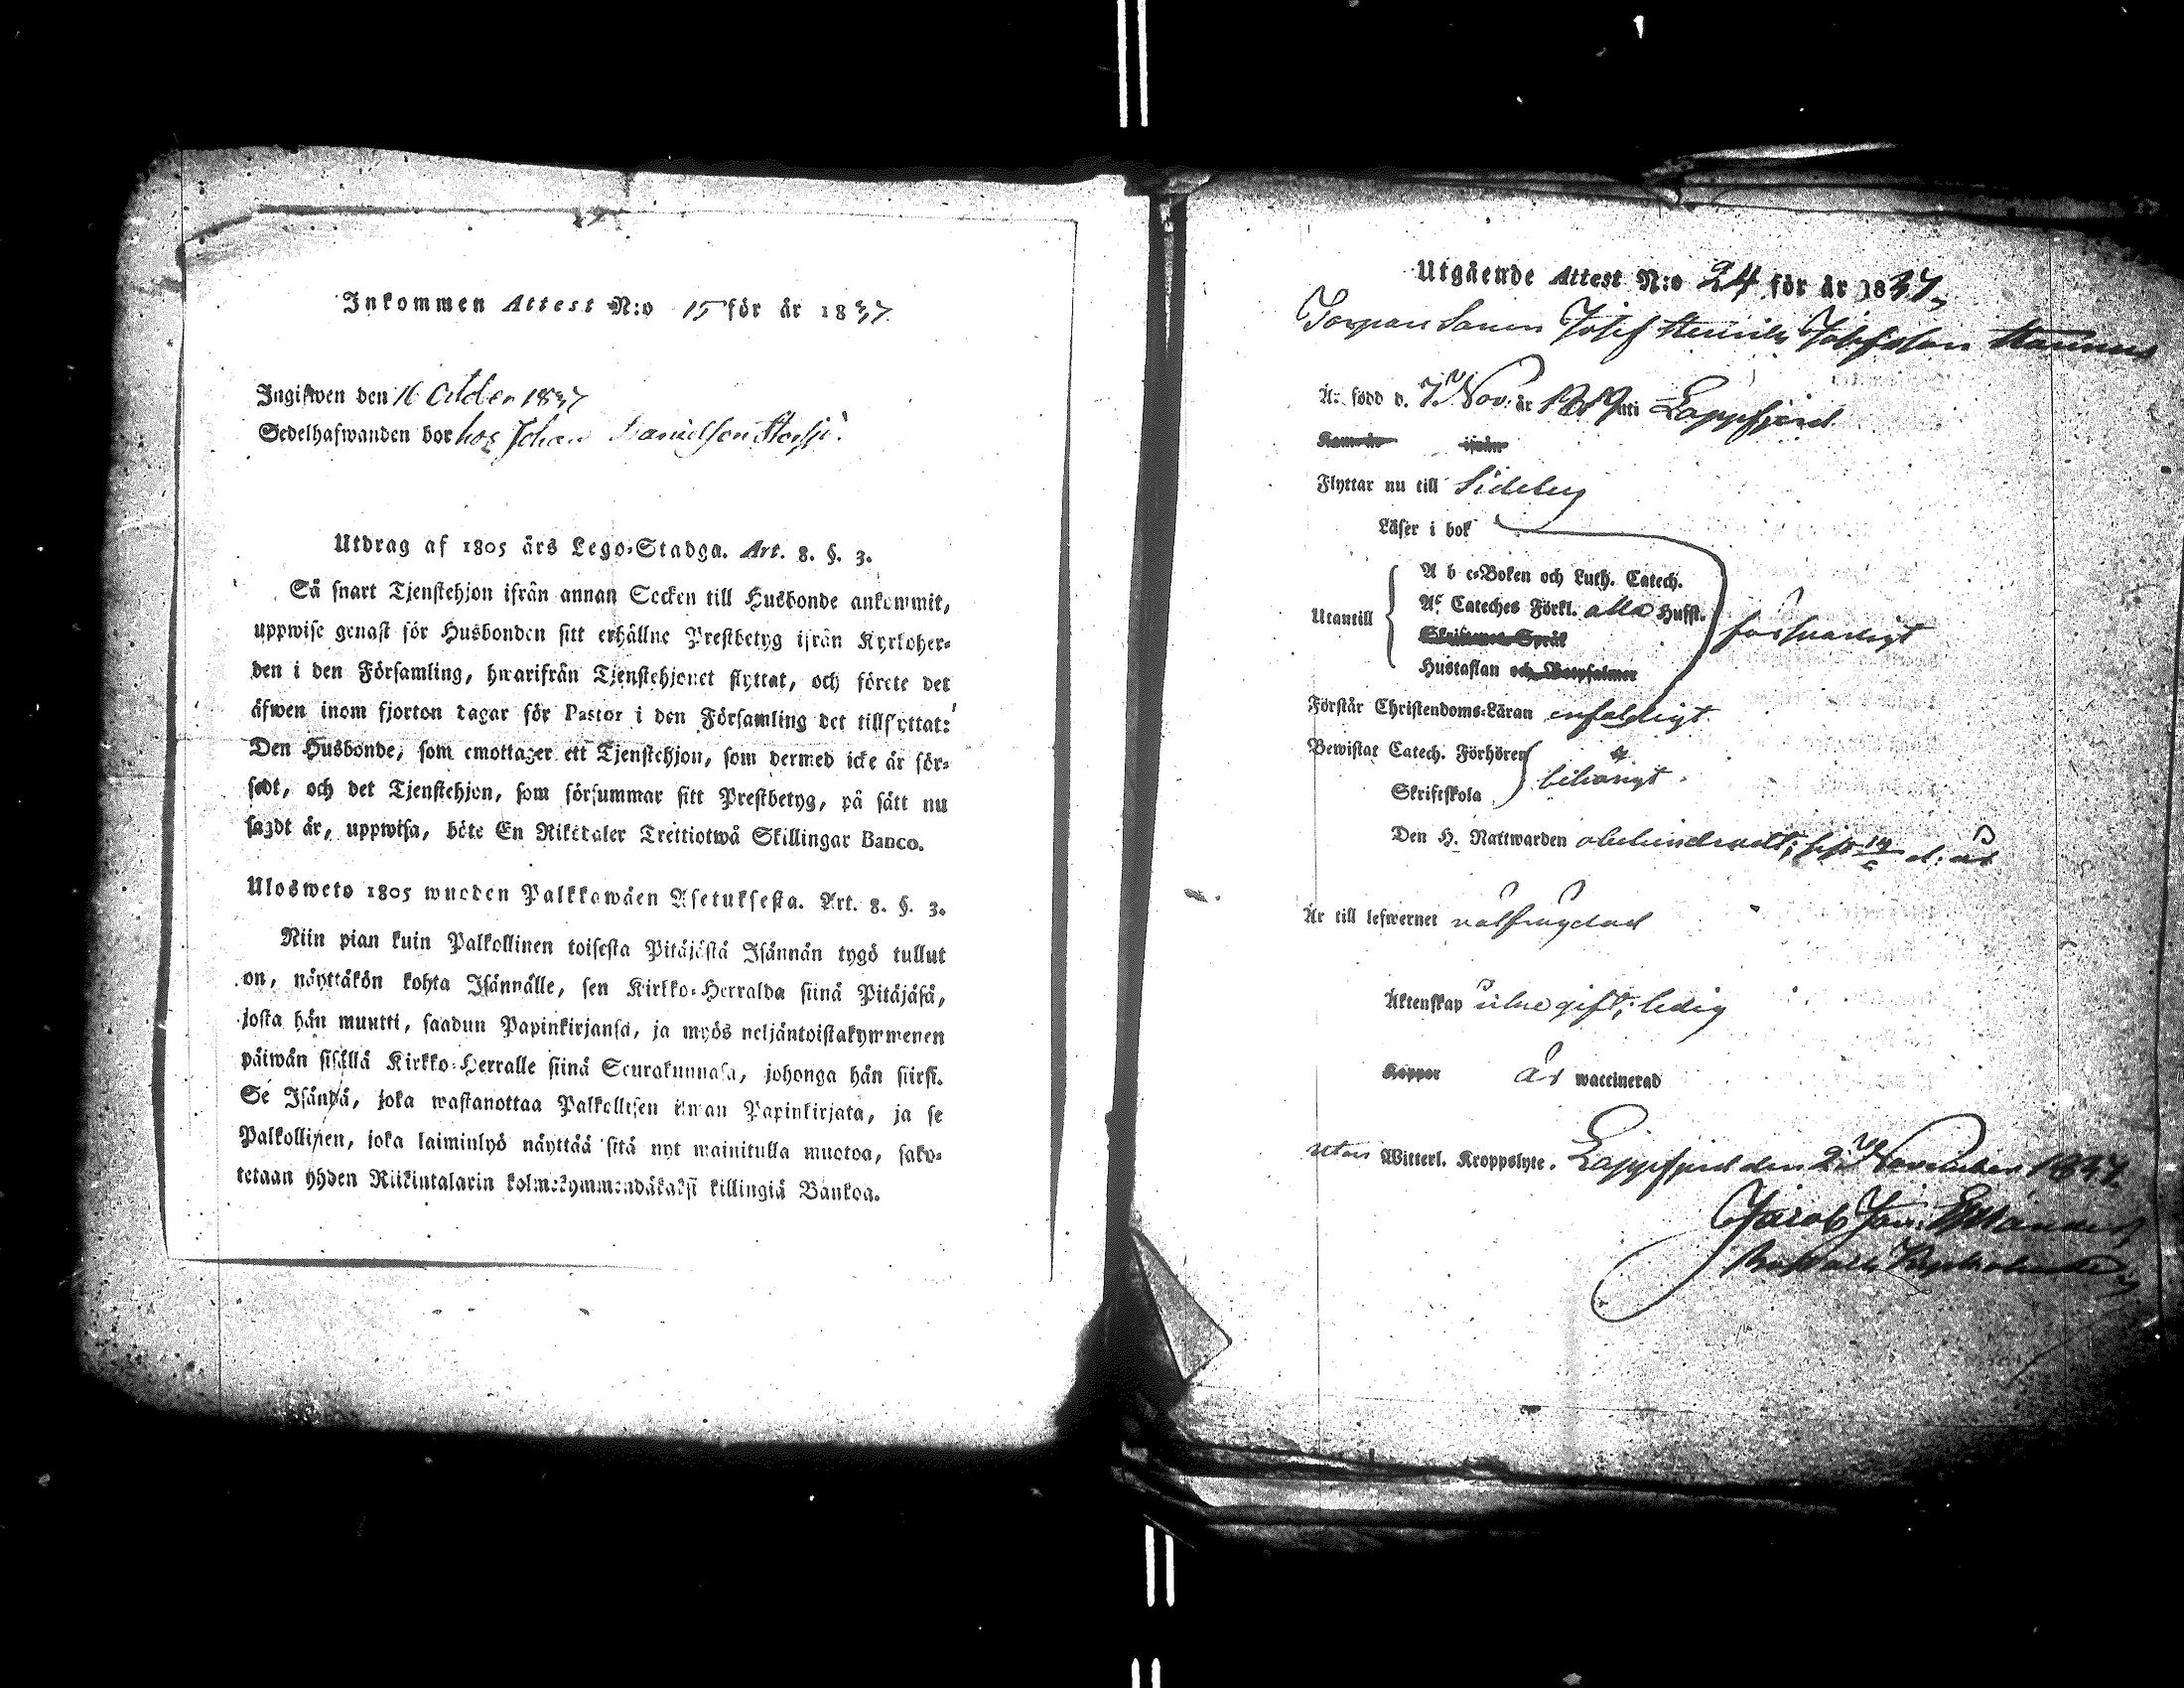 Inkommen Attest N:o 15 för år 1837
Ingifwen den 16 October 1837
Sedelhafwanden bor hos Johan Danielson
Utdrag af 1805 års Lego-Stadga. Art. 8. §. 3.
Så snart Tjenstehjon ifrån annan Socken till Husbonde ankommit,
uppwise genast för Husbonden sitt erhållne Prestbetyg ifrån Kyrkoher-
den i den Församling, hwarifrån Tjenstehjonet flyttat, och förete det
äfwen inom fjorton dagar för Pastor i den Församling det tillflyttat:
Den Husbonde, som emottager ett Tjenstehjon, som dermed icke är för-
sedt, och det Tjenstehjon, som försummar sitt Prestbetyg, på sätt nu
sagdt är, uppwisa, böte En Riksdaler Trettiotwå Skillingar Banco.
Ulosweto 1805 wuoden Palkkawäen Asetuksesta. Art. 8. §. 3.
Niin pian kuin Palkollinen toisesta Pitäjästä Isännän tygö tullut
on, näyttäkön kohta Isännälle, sen Kirkko-Herralda siinä Pitäjäsä,
josta hän muutti, saadun Papinkirjansa, ja myös neljäntoistakymmenen
päiwän sisällä Kirkko-Herralle siinä Seurakunnasa, johonga hän siirsi.
Se Isändä, joka wastanottaa Palkollisen ilman Papinkirjata, ja se
Palkollinen, joka laiminlyö näyttää sitä nyt mainitulla muotoa, sako-
tetaan yhden Riikintalarin kolmekymmendäkaksi killingiä Bankoa.
Utgående Attest N:o 24 för år 1837,
Torpare Sonen Josef Henrik Josefsson
Är född d. 7 Nov. år 1819 uti Lappfjerd
Kom år ifrån
Flyttar nu till Sideby
Läser i bok
Utantill
A b c-Boken och Luth. Catech.
Af Cateches Förkl. alla Hufst.
Skriftenes Språk
Hustaflan och Botpsalmer
försvarligt
Förstår Christendoms-Läran enfaldigt.
Bewistat Catech. Förhören
Skriftskola
behörigt.
Den H. Nattwarden obehindradt; sist d. år
Är till lefwernet välfrägdad
Äktenskap icke gift; ledig
Koppor är waccinerad
utan Witterl. Kroppslyte. Lappfjerd den 2 November 1837.
Jacob Joh. Estlander